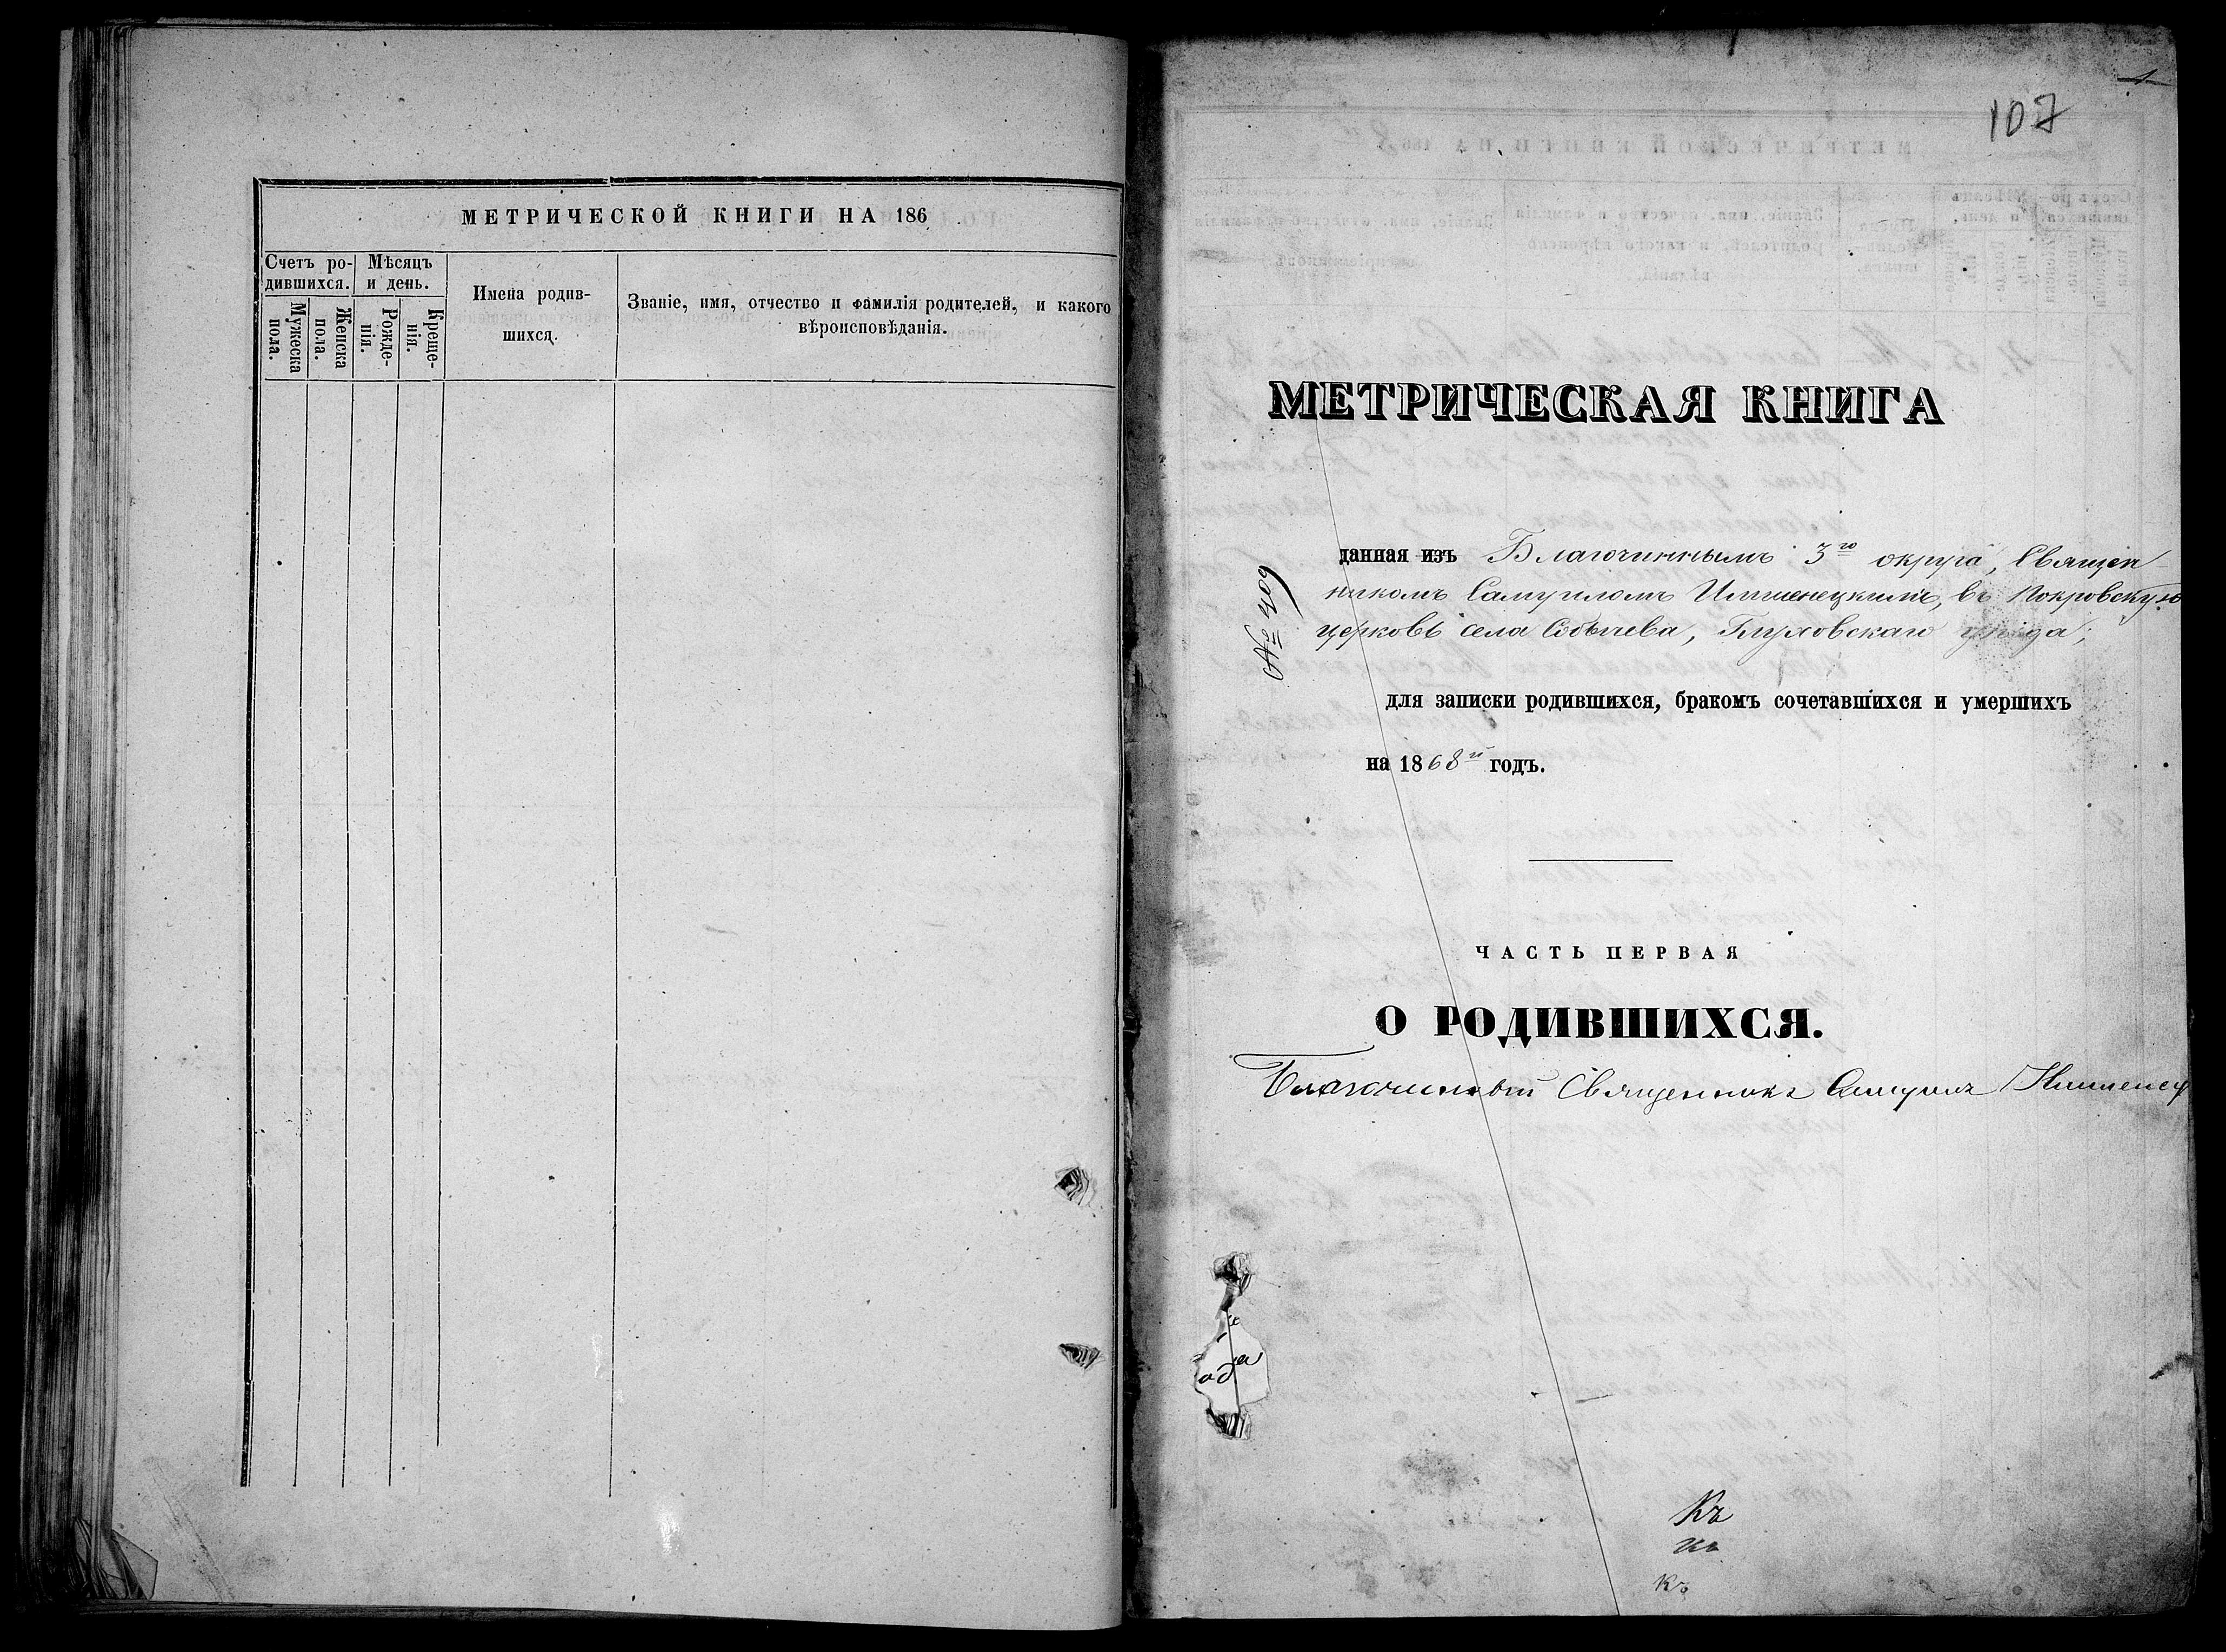 МЕТРИЧЕСКОЙ КНИГИ НА 186
Счетъ ро-
дившихся.
Мѣсяцъ
и день.
Мужеска
пола.
Женска
пола.
Рожде-
нія.
Креще-
нія.
Имена родив-
шихся.
Званіе, имя, отчество и фамилія родителей, и какого
вѣроисповѣданія.
1
107
МЕТРИЧЕСКАЯ КНИГА
№ 409
данная изъ Благочиннымъ 3го округа, Священ-
никомъ Самуиломъ Имшенецкимъ, въ Покровскую
церковь села Собычева, Глуховскаго уѣзда;
для записки родившихся, бракомъ сочетавшихся и умершихъ
на 1868й годъ.
ЧАСТЬ ПЕРВАЯ
О РОДИВШИХСЯ.
Благочинный Священникъ Самуилъ
ода
Къ
къ